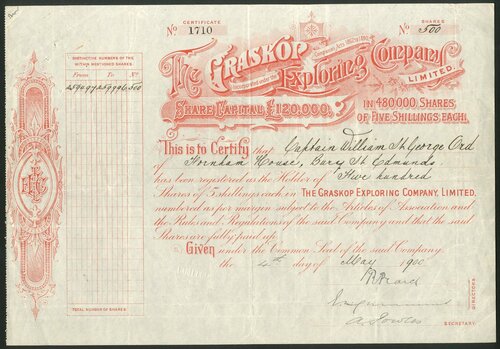 CERTIFICATE
No 1710
SHARES
No 500
THE GRASKOP
Incorporated under the Companies Acts 1862 to 1890
Exploring Company
LIMITED.
SHARE CAPITAL £120,000,
IN 480,000 SHARES,
OF FIVE SHILLINGS EACH.
DISTINCTIVE NUMBERS OF THE
WITHIN MENTIONED SHARES
From To No.
500
This is to Certify that Captain William St George Ord
of Fornham House, Bury St Edmunds
has been registered as the Holder of Five hundred
Shares of 5 shillings each in THE GRASKOP EXPLORING COMPANY, LIMITED,
numbered as per margin subject to the Articles of Association and
the Rules and Regulations of the said Company and that the said
Shares are fully paid up.
Given under the Common Seal of the said Company
the 4th day of May 1900
DIRECTORS
SECRETARY.
TOTAL NUMBER OF SHARES